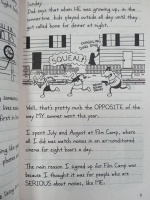 Sunday.
Dad says that when HE was growing up, in the
summertime kids played outside all day until they
got called home for dinner at night.
SQUEAL!
Well, that's pretty much the OPPOSITE of the
way MY summer went this year.
I spent July and August at Film Camp, where
all I did was watch movies in an air-conditioned
cinema for eight hours a day.
The main reason I signed up for Film Camp was
because I thought it was for people who are
SERIOUS about movies, like ME.